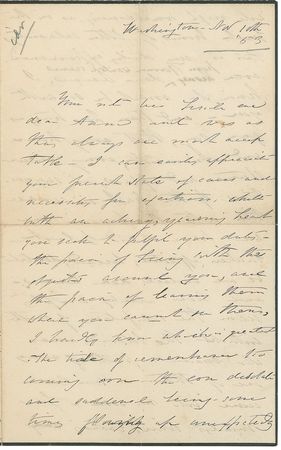 Washington - Nov 10th
'53
Your note was beside me
dear Anna and was as
they always are most accep
table - I can easily appreciate
your present state of cares and
necessity for exertions, while
with an aching, yearning heart
you seek to fulfil your duties -
the pain of being with the
objects around you, and
the pain of leaving them
when you cannot see them,
I hardly know which is greatest
The tide of remembrance too
coming over the desolate
and saddened being - some
times up unexpectedly